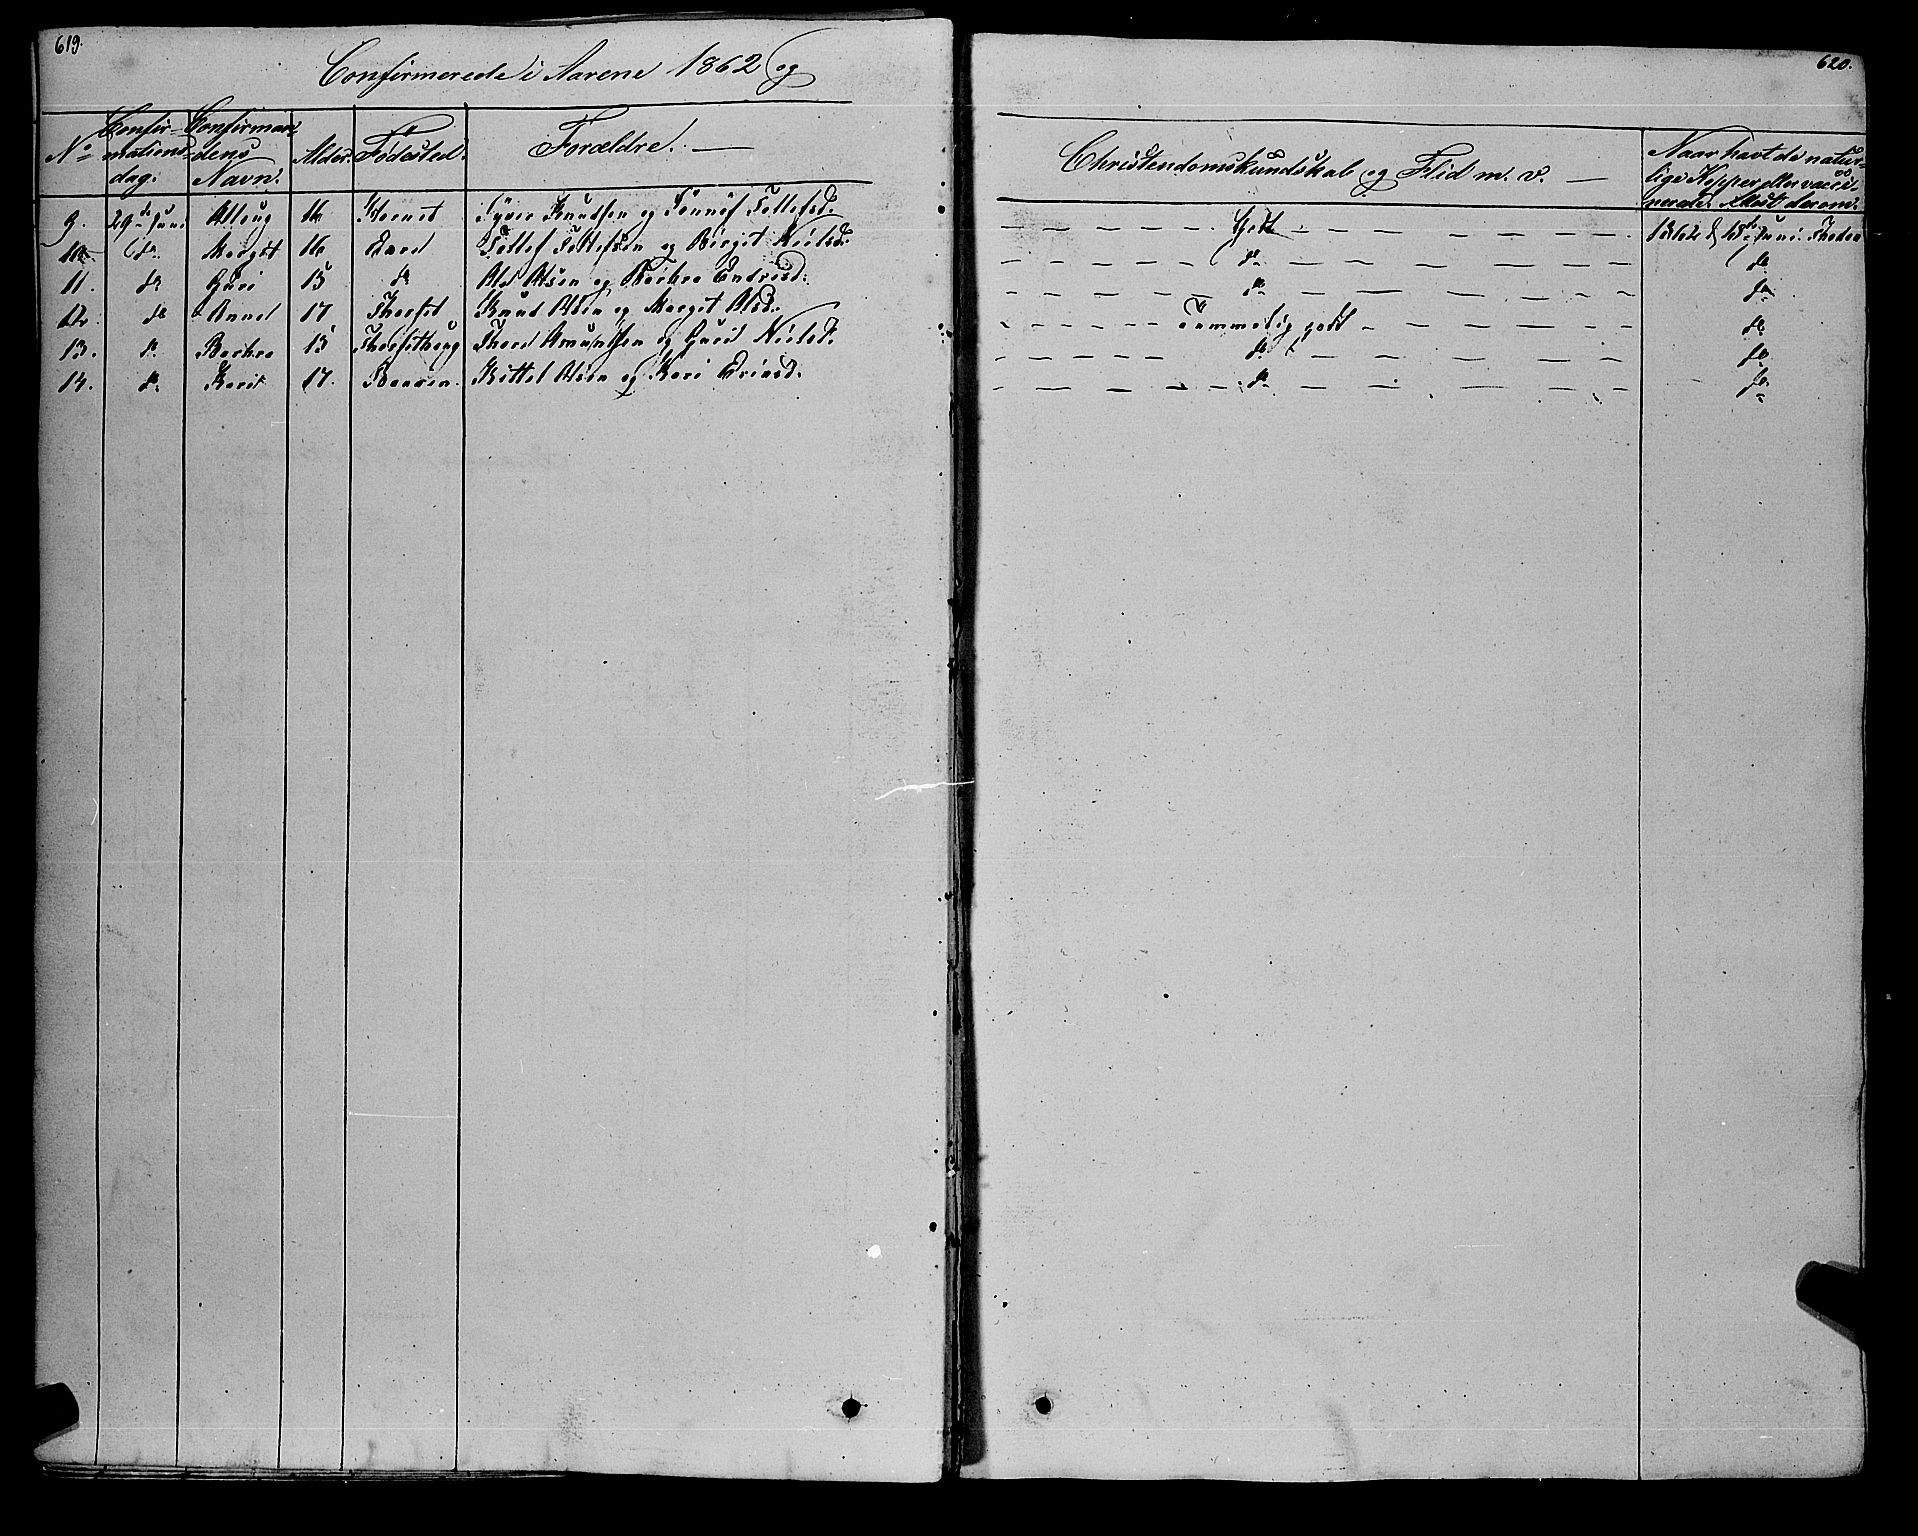 619.
Confirmerede i Aarene 1862 og
No Confirmations-dag. Confirmandens Navn. Alder. Fødested. Forældre.
9. 29de Juni Aslaug 16 Knud­sen og Tollefsd.
10. do Margit 16 Tollef Tollefsen og Birgit Nielsd.
11. do Guri 15 do Ole Olsen og Barbro Endresd.
12. do Anne 17 Knud Olsen og Margit Olsd.
13. do Barbro 15 Thore Amundsen og Guri Nielsd.
14. do Kari 17. Kittel Olsen og Kari
620.
Christendomskundskab og Flid m. v. Naar havt de natur-
lige Kopper eller vacci-
nerede, Attest derom.
Godt 1862 d. 15de Juni.
do do
do do
Temmelig godt do
do do
do do